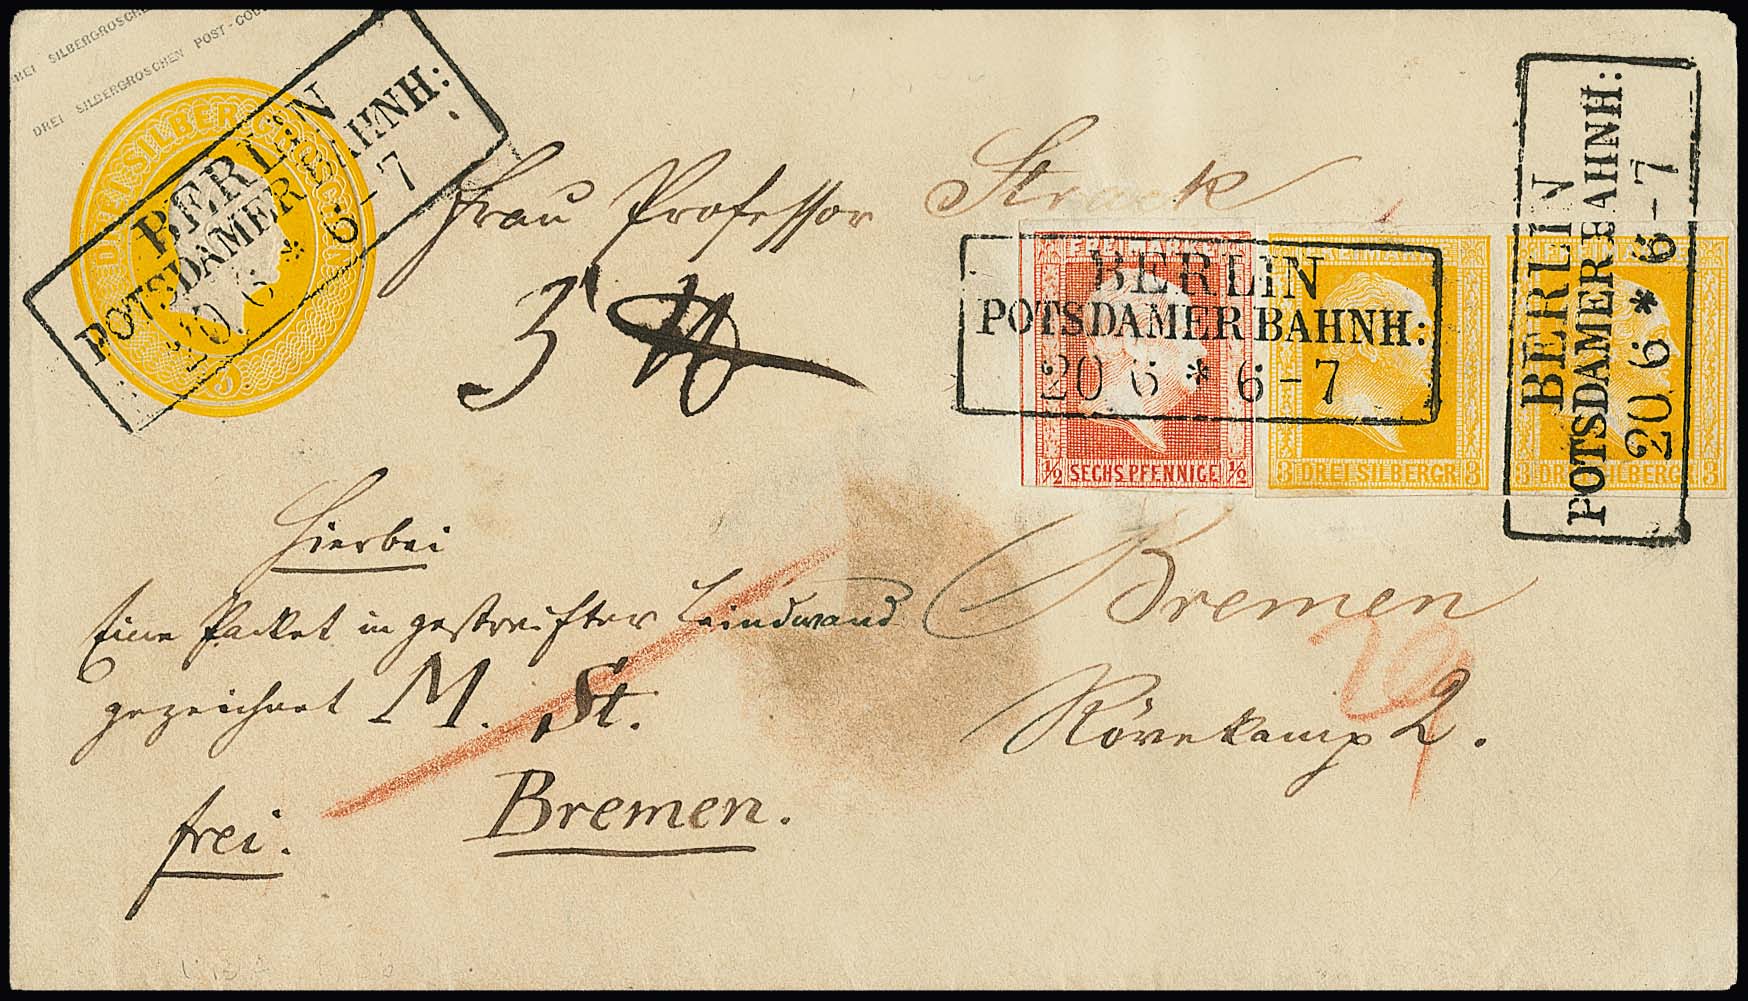 DREI SILBERGROSCHEN
DREI SILBERGROSCHEN POST-COUV
DREI SILBERGROSCHEN
BERLIN
POTSDAMER BAHNH:
20 6 * 6-7
Frau Professor Strack
3
FREIMARKE
½ SECHS PFENNIGE ½
BERLIN
POTSDAMER BAHNH:
20 6 * 6-7
FREIMARKE
3 DREI SILBERGR 3
3 DREI SILBERGR 3
BERLIN
POTSDAMER BAHNH:
20 6 * 6-7
Hierbei
Eine Packet in gestreifter Leindwand
gezeichnet M. St.
Bremen.
frei.
Bremen
Rövekamp 2.